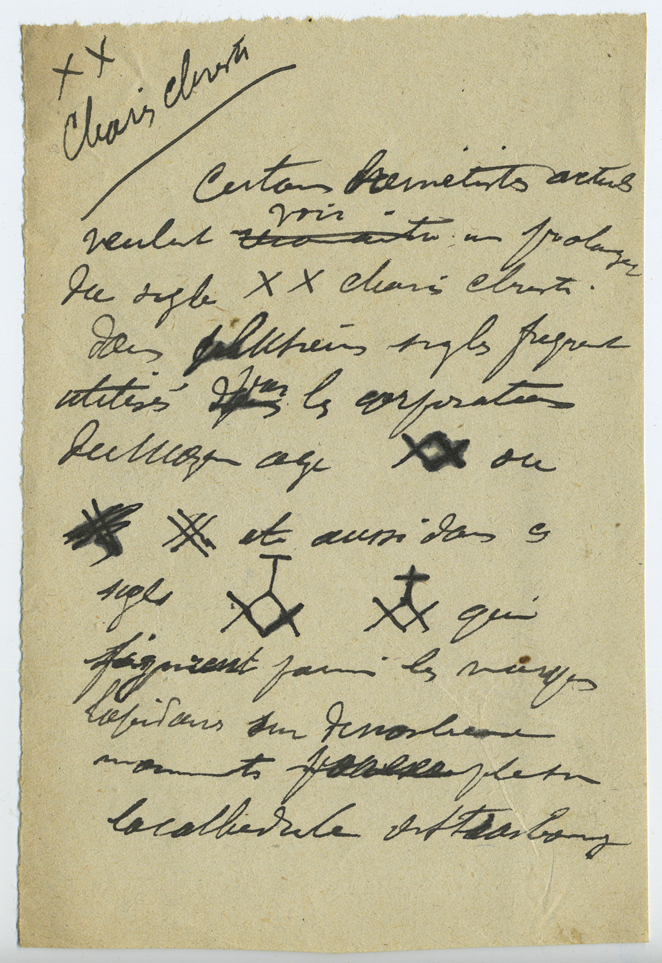 XX
Charis christi
Certains hermétistes actuels
voir
veulent un prolongt
du sigle XX charis christi.
dans plusieurs sigles fréquent
utilisés par les corporations
du Moyen age XX ou
et aussi dans ces
sigles qui
figurent parmi les marques
lapidaires sur de nombreux
monuments par exemple sur
la cathédrale de Strasbourg